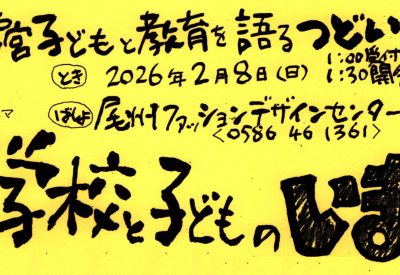 宮子どもと教育を語るつどい
とき 2026年2月8日(日) 1:00受付
1:30開会
マ
ばしょ 尾州ファッションデザインセンター
<0586 46 1361>
学校と子どものいま